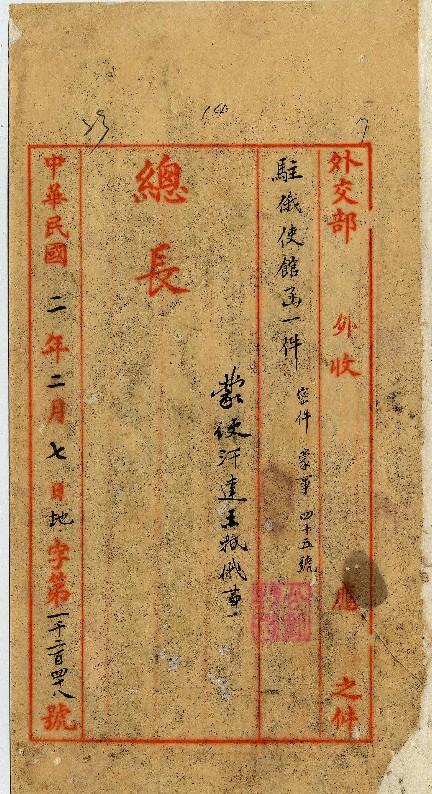 外交部 外收 應 之件
駐俄使館函一件 密件 蒙事 四十五號
總長
蒙使汗達王抵俄事
中華民國 二年二月七日地字第一千二百四十八號